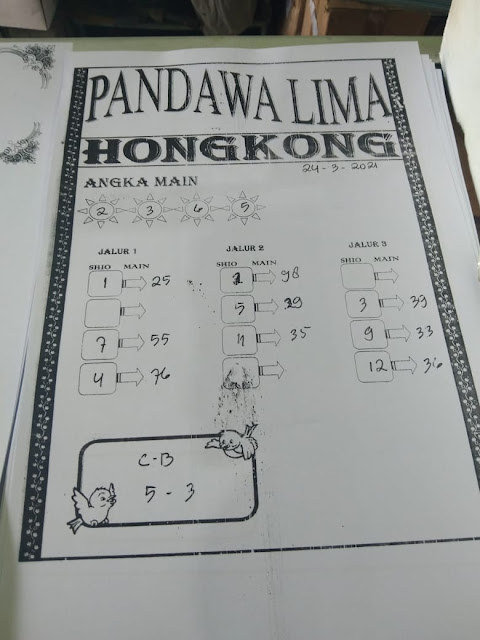 PANDAWA LIMA
HONGKONG
24-3-2021
ANGKA MAIN
2 3 6 5
JALUR 1 JALUR 2 JALUR 3
SHIO MAIN SHIO MAIN SHIO MAIN
1 25 98
5 29 3 39
7 55 11 35 9 33
4 76 12 36
C-B
5 - 3